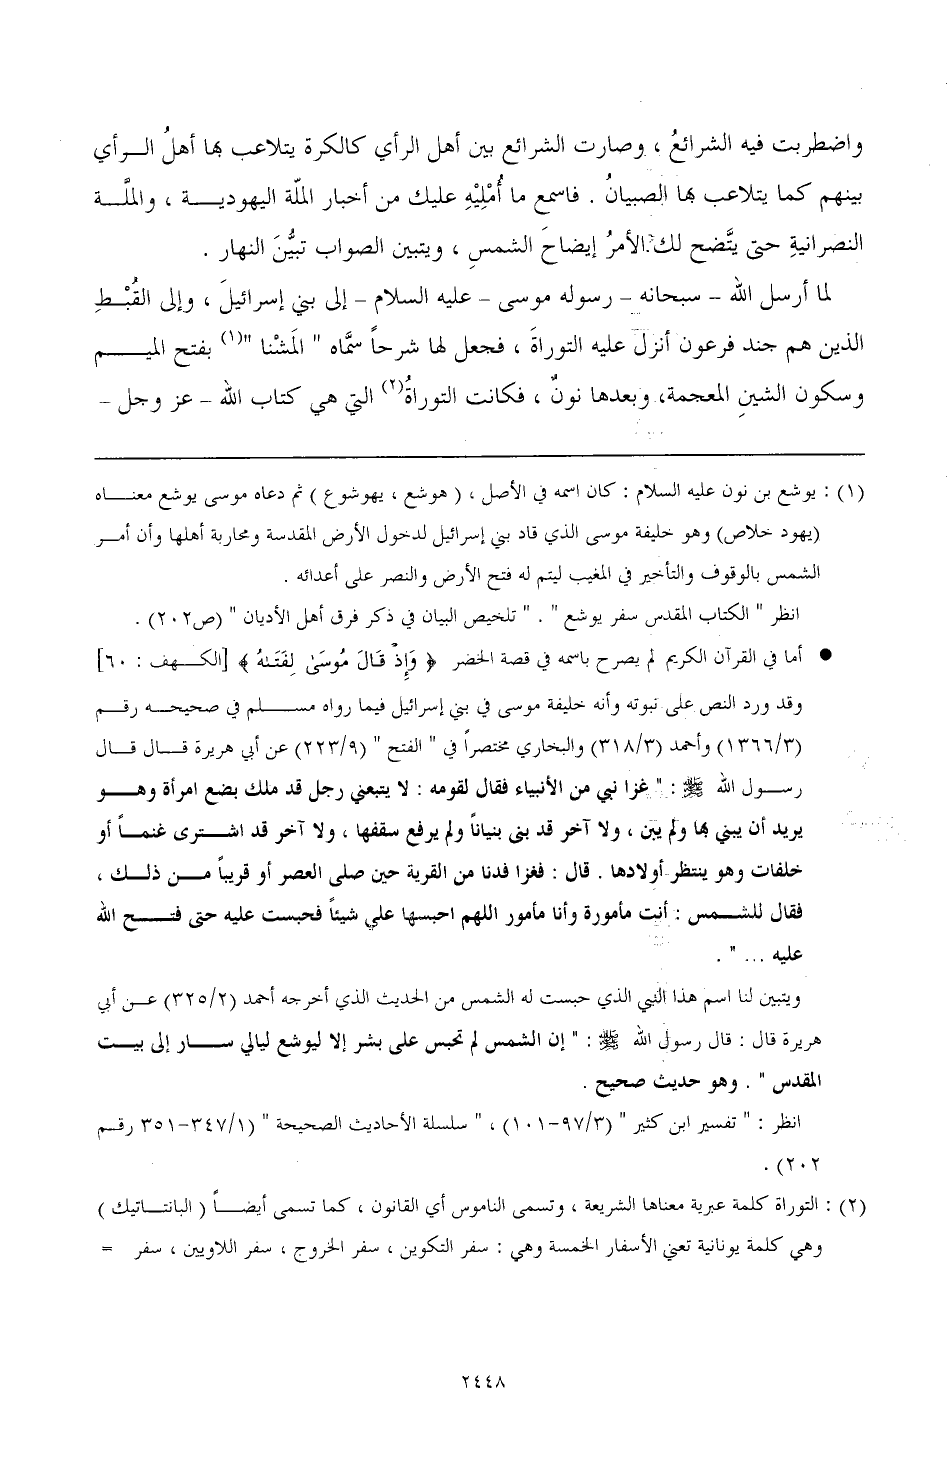 واضطربت فيه الشرائعُ ، وصارت الشرائع بين أهل الرأي كالكرة يتلاعب بها أهلُ الرأي
بينهم كما يتلاعب بها الصبيانُ . فاسمع ما أُمْلِيْهِ عليك من أخبار الملّة اليهودية ، والملَّة
النصرانيةِ حتى يتَّضح لك الأمرُ إيضاحَ الشمسِ ، ويتبين الصواب تبيُّنَ النهار .
لما أرسل الله – سبحانه – رسوله موسى – عليه السلام – إلى بني إسرائيلَ ، وإلى القُبْطِ
الذين هم جند فرعون أنزلَ عليه التوراةَ ، فجعل لها شرحاً سمَّاه " المَشْنا "(١) بفتح الميم
وسكون الشينِ المعجمة، وبعدها نونٌ ، فكانت التوراةُ(٢) التي هي كتاب الله – عز وجل –
(١) : يوشع بن نون عليه السلام : كان اسمه في الأصل ، ( هوشع ، يهوشوع ) ثم دعاه موسى يوشع معناه
(يهود خلاص) وهو خليفة موسى الذي قاد بني إسرائيل لدخول الأرض المقدسة ومحاربة أهلها وأن أمر
الشمس بالوقوف والتأخير في المغيب ليتم له فتح الأرض والنصر على أعدائه .
انظر " الكتاب المقدس سفر يوشع " . " تلخيص البيان في ذكر فرق أهل الأديان " (ص٢٠٢) .
● أما في القرآن الكريم لم يصرح باسمه في قصة الخضر ﴿ وَإِذْ قَالَ مُوسَىٰ لِفَتَىٰهُ ﴾ [الكهف : ٦٠]
وقد ورد النص على نبوته وأنه خليفة موسى في بني إسرائيل فيما رواه مسلم في صحيحه رقم
(١٣٦٦/٣) وأحمد (٣١٨/٣) والبخاري مختصراً في " الفتح " (٢٢٣/٩) عن أبي هريرة قال قال
رسول الله ﷺ : " غزا نبي من الأنبياء فقال لقومه : لا يتبعني رجل قد ملك بضع امرأة وهو
يريد أن يبني بها ولم يبن ، ولا آخر قد بنى بنياناً ولم يرفع سقفها ، ولا آخر قد اشترى غنماً أو
خلفات وهو ينتظر أولادها . قال : فغزا فدنا من القرية حين صلى العصر أو قريباً من ذلك ،
فقال للشمس : أنت مأمورة وأنا مأمور اللهم احبسها علي شيئاً فحبست عليه حتى فتح الله
عليه ... " .
ويتبين لنا اسم هذا النبي الذي حبست له الشمس من الحديث الذي أخرجه أحمد (٣٢٥/٢) عن أبي
هريرة قال : قال رسول الله ﷺ : " إن الشمس لم تحبس على بشر إلا ليوشع ليالي سار إلى بيت
المقدس " . وهو حديث صحيح .
انظر : " تفسير ابن كثير " (٩٧/٣-١٠١) ، " سلسلة الأحاديث الصحيحة " (٣٤٧/١-٣٥١ رقم
٢٠٢) .
(٢) : التوراة كلمة عبرية معناها الشريعة ، وتسمى الناموس أي القانون ، كما تسمى أيضاً ( البانتاتيك )
وهي كلمة يونانية تعني الأسفار الخمسة وهي : سفر التكوين ، سفر الخروج ، سفر اللاويين ، سفر =
٢٤٤٨